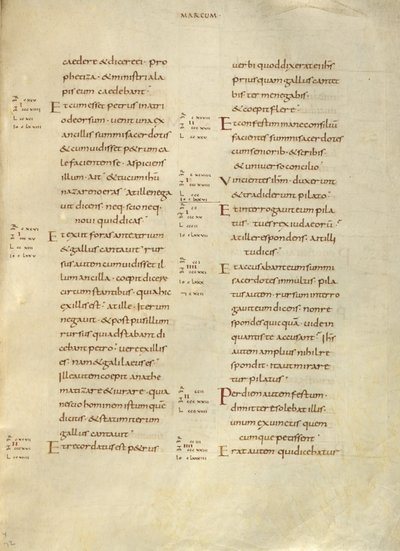 MARCUM
caedere & dicere ei · pro
phetiza · & ministri ala
pis eum caedebant ·
Et cum esset petrus in atri
o deorsum · uenit una ex
ancillis summi sacerdotis
& cum uidisset p&rum ca
lefacientem se · aspiciens
illum · ait · & tu cum ihu
nazareno eras · at ille nega
uit dicens · neq; scio neq;
noui quid dicas ·
Et exiit foras ante atrium
& gallus cantauit · rur
sus autem cum uidisset il
lum ancilla · coepit dicere
circumstantibus · quia hic
ex illis est · at ille iterum
negauit · & post pusillum
rursus qui adstabant di
cebant petro · uere ex illis
es · nam & galilaeus es ·
Ille autem coepit anathe
matizare & iurare · quia
nescio hominem istum quem
dicitis · & statim iterum
gallus cantauit ·
Et recordatus est p&rus
uerbi quod dixerat ei ihs
priusquam gallus cant&
bis ter me negabis ·
& coepit flere ·
Et confestim mane consilium
facientes summi sacerdotes
cum seniorib; & scribis ·
& uniuerso concilio ·
Vincientes ihm · duxerunt
& tradiderunt pilato ·
Et interrogauit eum pila
tus · tu es rex iudaeorum
at ille respondens · ait illi
tu dicis ·
Et accusabant eum summi
sacerdotes in multis · pila
tus autem · rursum interro
gauit eum dicens · non re
spondes quicquam · uide in
quantis te accusant · ihs
autem amplius nihil re
spondit · ita ut mirare
tur pilatus ·
Per diem autem festum ·
dimittere solebat illis ·
unum ex uinctis quem
cumque petissent ·
Erat autem qui dicebatur